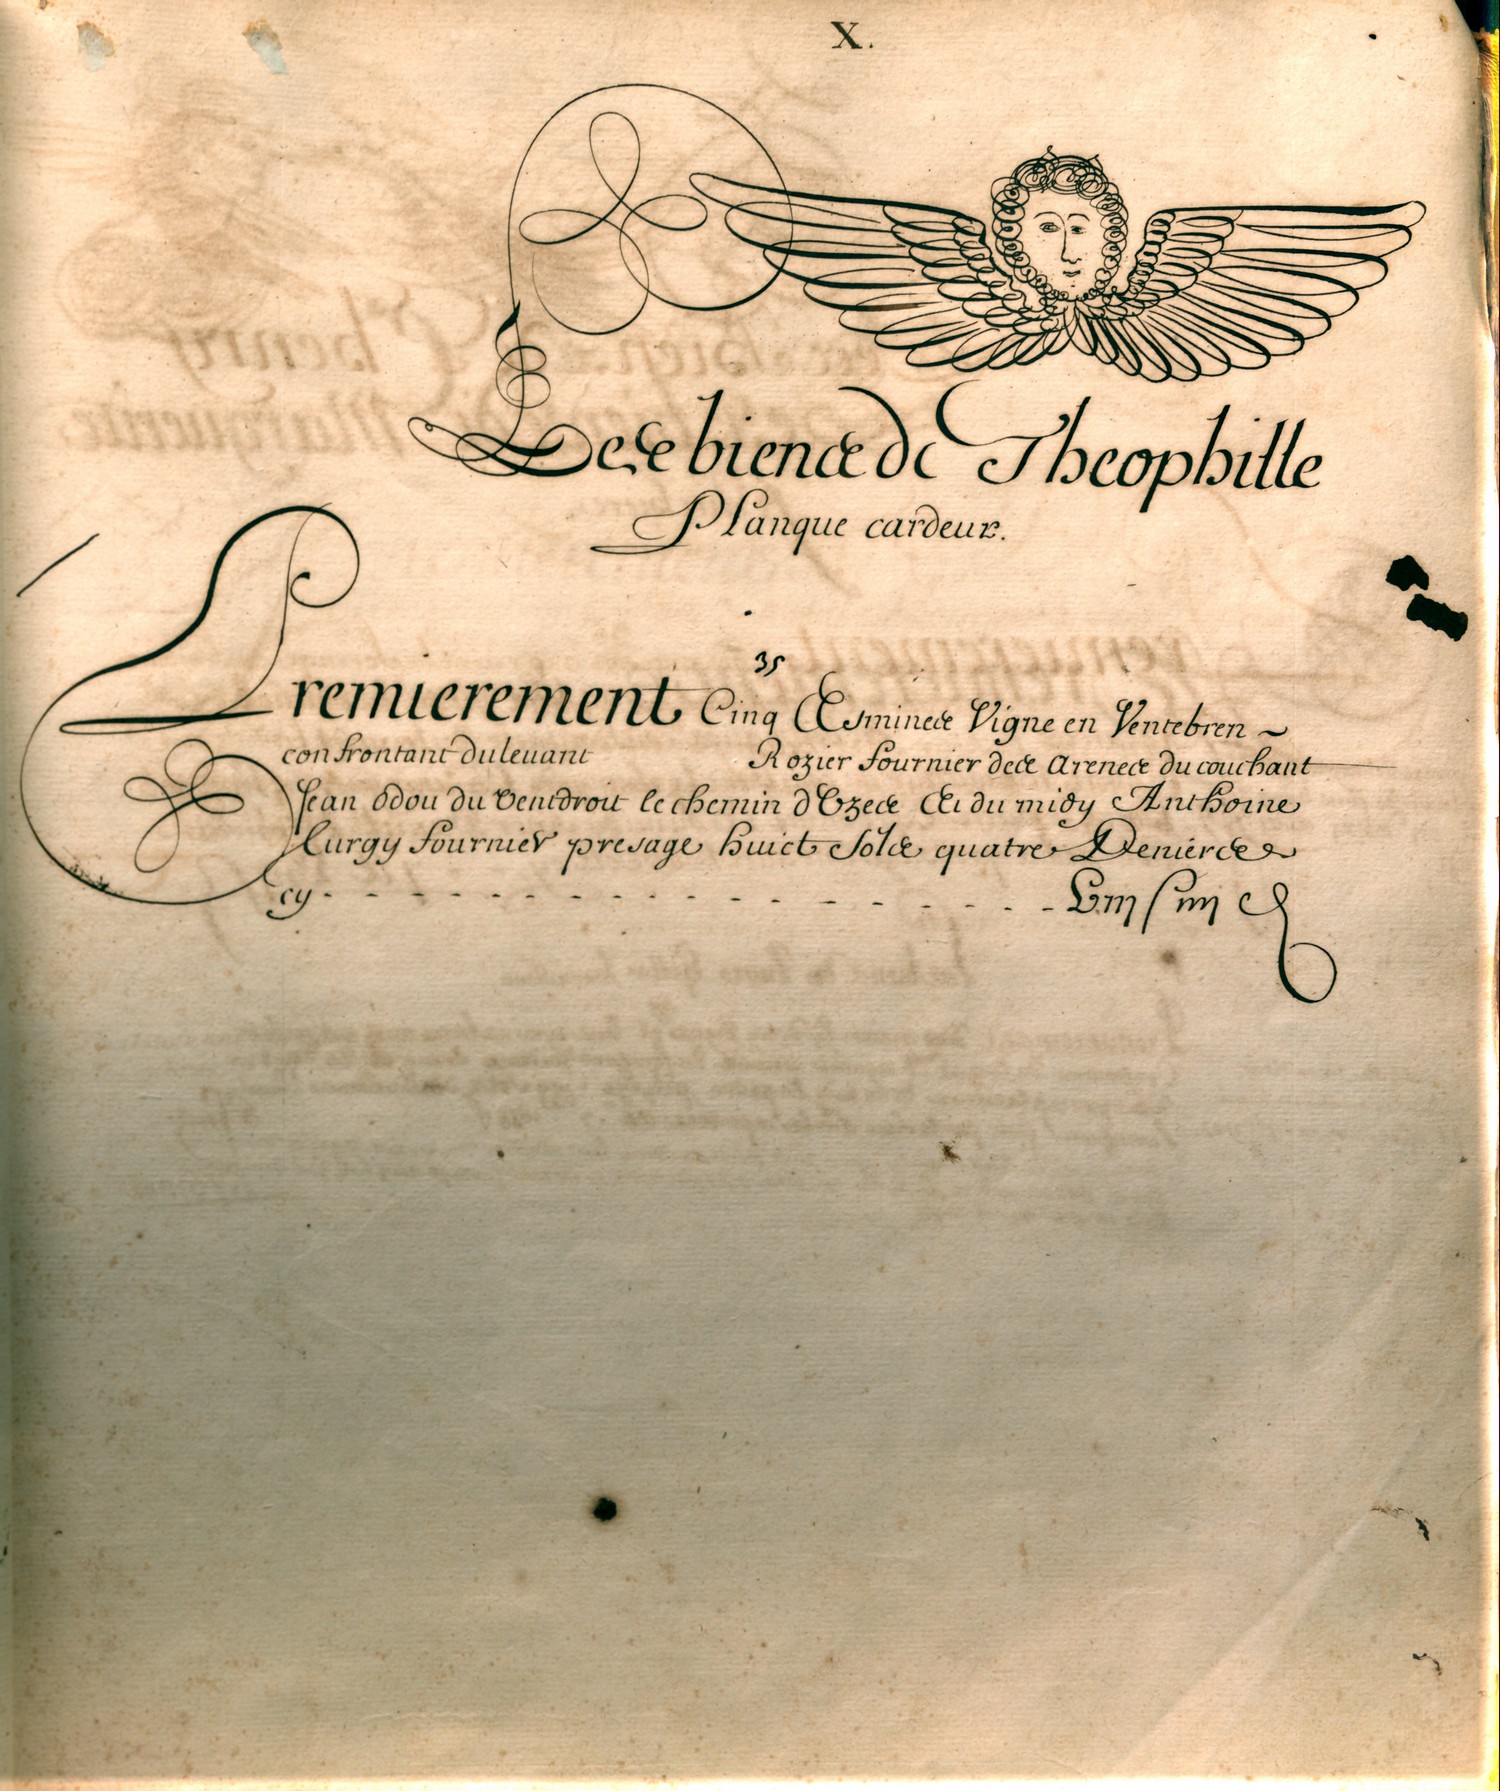 X.
Les biens de Theophille
Planque cardeur.
35
Premierement Cinq Esmines Vigne en Ventebren ~
confrontant du levant Rozier fournier des Arenes du couchant
Jean Odou du Ventdroit le chemin d'Uzes Et du midy Anthoine
Curgy fournier presage huict Solz quatre Deniers
cy